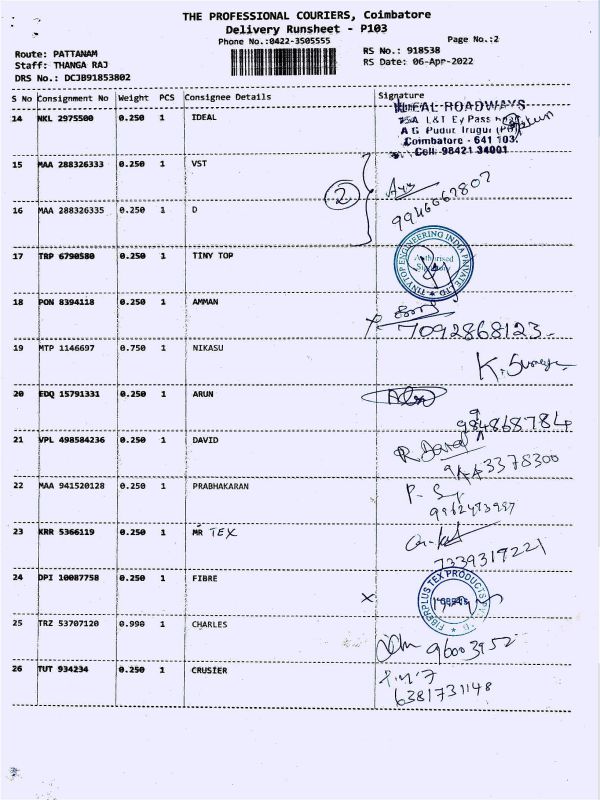 THE PROFESSIONAL COURIERS, Coimbatore
Delivery Runsheet - P103
Phone No.:0422-3505555
Page No.:2
Route: PATTANAM
RS No.: 918538
Staff: THANGA RAJ
RS Date: 06-Apr-2022
DRS No.: DCJB91853802
S No Consignment No Weight PCS Consignee Details Signature
14 NKL 2975500 0.250 1 IDEAL
ROADWAYS
L&T By Pass
Coimbatore - 641 103.
Cell: 98421 34001
15 MAA 288326333 0.250 1 VST
2
9946667802
16 MAA 288326335 0.250 1 D
17 TRP 6790580 0.250 1 TINY TOP
TINYTOP ENGINEERING INDIA PRIVATE LTD
Authorised
18 PON 8394118 0.250 1 AMMAN
7092868123
19 MTP 1146697 0.750 1 NIKASU
20 EDQ 15791331 0.250 1 ARUN
984868784
21 VPL 498584236 0.250 1 DAVID
R. David
9443378300
22 MAA 941520128 0.250 1 PRABHAKARAN
23 KRR 5366119 0.250 1 MR TEX
7339317221
24 DPI 10087758 0.250 1 FIBRE
FIBERPLUS TEX PRODUCTS
25 TRZ 53707120 0.990 1 CHARLES
26 TUT 934234 0.250 1 CRUSIER
6381731148